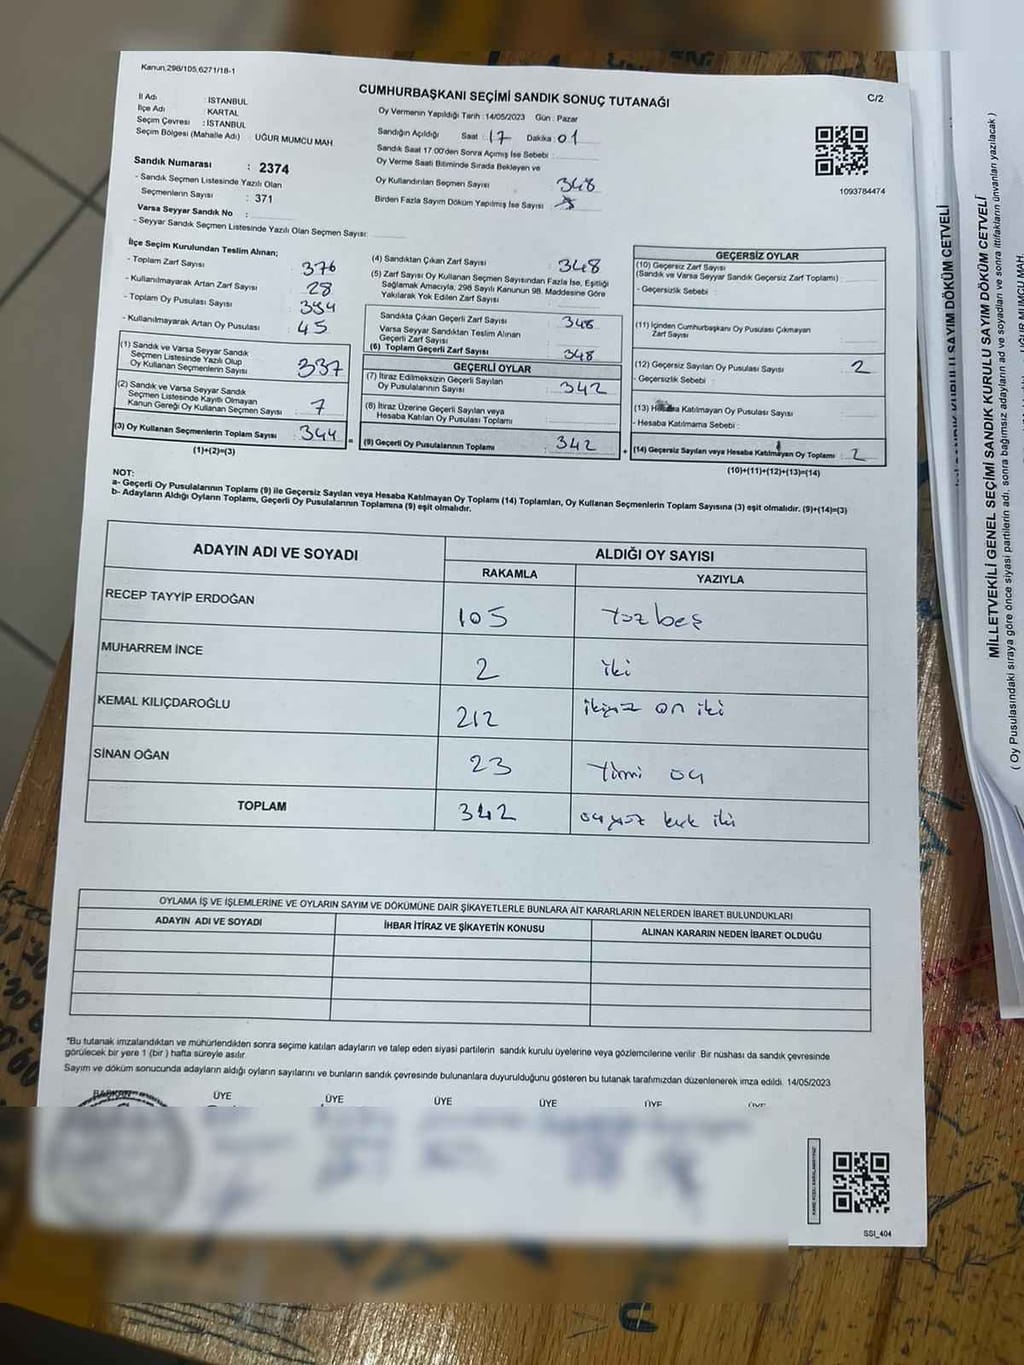 Kanun,298/105,6271/18-1
CUMHURBAŞKANI SEÇİMİ SANDIK SONUÇ TUTANAĞI
C/2
İl Adı : İSTANBUL
İlçe Adı : KARTAL
Seçim Çevresi : İSTANBUL
Seçim Bölgesi (Mahalle Adı) : UĞUR MUMCU MAH
Sandık Numarası : 2374
- Sandık Seçmen Listesinde Yazılı Olan
Seçmenlerin Sayısı : 371
Varsa Seyyar Sandık No :
- Seyyar Sandık Seçmen Listesinde Yazılı Olan Seçmen Sayısı:
Oy Vermenin Yapıldığı Tarih : 14/05/2023 Gün : Pazar
Sandığın Açıldığı Saat : 17 Dakika : 01
Sandık Saat 17.00'den Sonra Açmış İse Sebebi :
Oy Verme Saati Bitiminde Sırada Bekleyen ve
Oy Kullandırılan Seçmen Sayısı 348
Birden Fazla Sayım Döküm Yapılmış İse Sayısı
1093784474
İlçe Seçim Kurulundan Teslim Alınan;
- Toplam Zarf Sayısı : 376
- Kullanılmayarak Artan Zarf Sayısı : 28
- Toplam Oy Pusulası Sayısı : 394
- Kullanılmayarak Artan Oy Pusulası : 45
(1) Sandık ve Varsa Seyyar Sandık
Seçmen Listesinde Yazılı Olup
Oy Kullanan Seçmenlerin Sayısı : 337
(2) Sandık ve Varsa Seyyar Sandık
Seçmen Listesinde Kayıtlı Olmayan
Kanun Gereği Oy Kullanan Seçmen Sayısı : 7
(3) Oy Kullanan Seçmenlerin Toplam Sayısı : 344
(1)+(2)=(3)
(4) Sandıktan Çıkan Zarf Sayısı : 348
(5) Zarf Sayısı Oy Kullanan Seçmen Sayısından Fazla İse, Eşitliği
Sağlamak Amacıyla, 298 Sayılı Kanunun 98. Maddesine Göre
Yakılarak Yok Edilen Zarf Sayısı
Sandıkta Çıkan Geçerli Zarf Sayısı : 348
Varsa Seyyar Sandıktan Teslim Alınan
Geçerli Zarf Sayısı
(6) Toplam Geçerli Zarf Sayısı : 348
GEÇERLİ OYLAR
(7) İtiraz Edilmeksizin Geçerli Sayılan
Oy Pusulalarının Sayısı : 342
(8) İtiraz Üzerine Geçerli Sayılan veya
Hesaba Katılan Oy Pusulası Toplamı
(9) Geçerli Oy Pusulalarının Toplamı : 342
GEÇERSİZ OYLAR
(10) Geçersiz Zarf Sayısı
(Sandık ve Varsa Seyyar Sandık Geçersiz Zarf Toplamı)
- Geçersizlik Sebebi :
(11) İçinden Cumhurbaşkanı Oy Pusulası Çıkmayan
Zarf Sayısı
(12) Geçersiz Sayılan Oy Pusulası Sayısı : 2
- Geçersizlik Sebebi :
(13) Hesaba Katılmayan Oy Pusulası Sayısı
- Hesaba Katılmama Sebebi :
(14) Geçersiz Sayılan veya Hesaba Katılmayan Oy Toplamı : 2
(10)+(11)+(12)+(13)=(14)
NOT:
a- Geçerli Oy Pusulalarının Toplamı (9) ile Geçersiz Sayılan veya Hesaba Katılmayan Oy Toplamı (14) Toplamları, Oy Kullanan Seçmenlerin Toplam Sayısına (3) eşit olmalıdır. (9)+(14)=(3)
b- Adayların Aldığı Oyların Toplamı, Geçerli Oy Pusulalarının Toplamına (9) eşit olmalıdır.
ADAYIN ADI VE SOYADI ALDIĞI OY SAYISI
RAKAMLA YAZIYLA
RECEP TAYYİP ERDOĞAN 105 Yüz beş
MUHARREM İNCE 2 iki
KEMAL KILIÇDAROĞLU 212 ikiyüz on iki
SİNAN OĞAN 23
TOPLAM 342 kırk iki
OYLAMA İŞ VE İŞLEMLERİNE VE OYLARIN SAYIM VE DÖKÜMÜNE DAİR ŞİKAYETLERLE BUNLARA AİT KARARLARIN NELERDEN İBARET BULUNDUKLARI
ADAYIN ADI VE SOYADI İHBAR İTİRAZ VE ŞİKAYETİN KONUSU ALINAN KARARIN NEDEN İBARET OLDUĞU
"Bu tutanak imzalandıktan ve mühürlendikten sonra seçime katılan adayların ve talep eden siyasi partilerin sandık kurulu üyelerine veya gözlemcilerine verilir. Bir nüshası da sandık çevresinde
görülecek bir yere 1 (bir) hafta süreyle asılır.
Sayım ve döküm sonucunda adayların aldığı oyların sayılarını ve bunların sandık çevresinde bulunanlara duyurulduğunu gösteren bu tutanak tarafımızdan düzenlenerek imza edildi. 14/05/2023
BAŞKAN ÜYE ÜYE ÜYE ÜYE ÜYE ÜYE
SSI_404
MİLLETVEKİLİ GENEL SEÇİMİ SANDIK KURULU SAYIM DÖKÜM CETVELİ
( Oy Pusulasındaki sıraya göre önce siyasi partilerin adı, sonra bağımsız adayların ad ve soyadları ve sonra ittifakların ünvanları yazılacak )
UĞUR MUMCU MAH.
SAYIM DÖKÜM CETVELİ